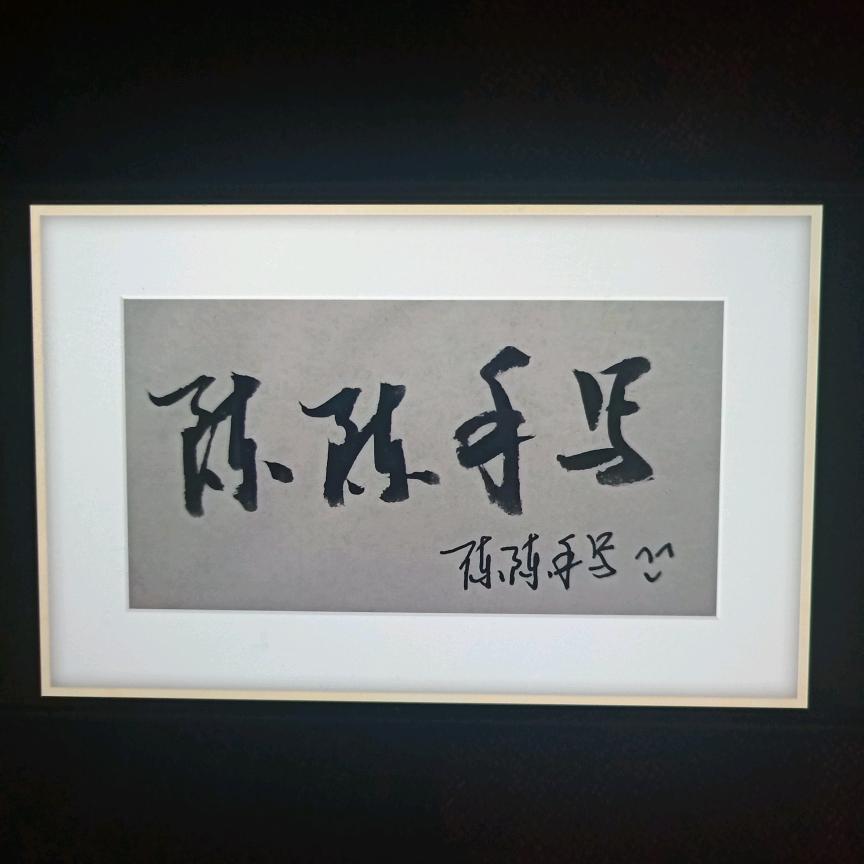 陈陈手写
陈陈手写